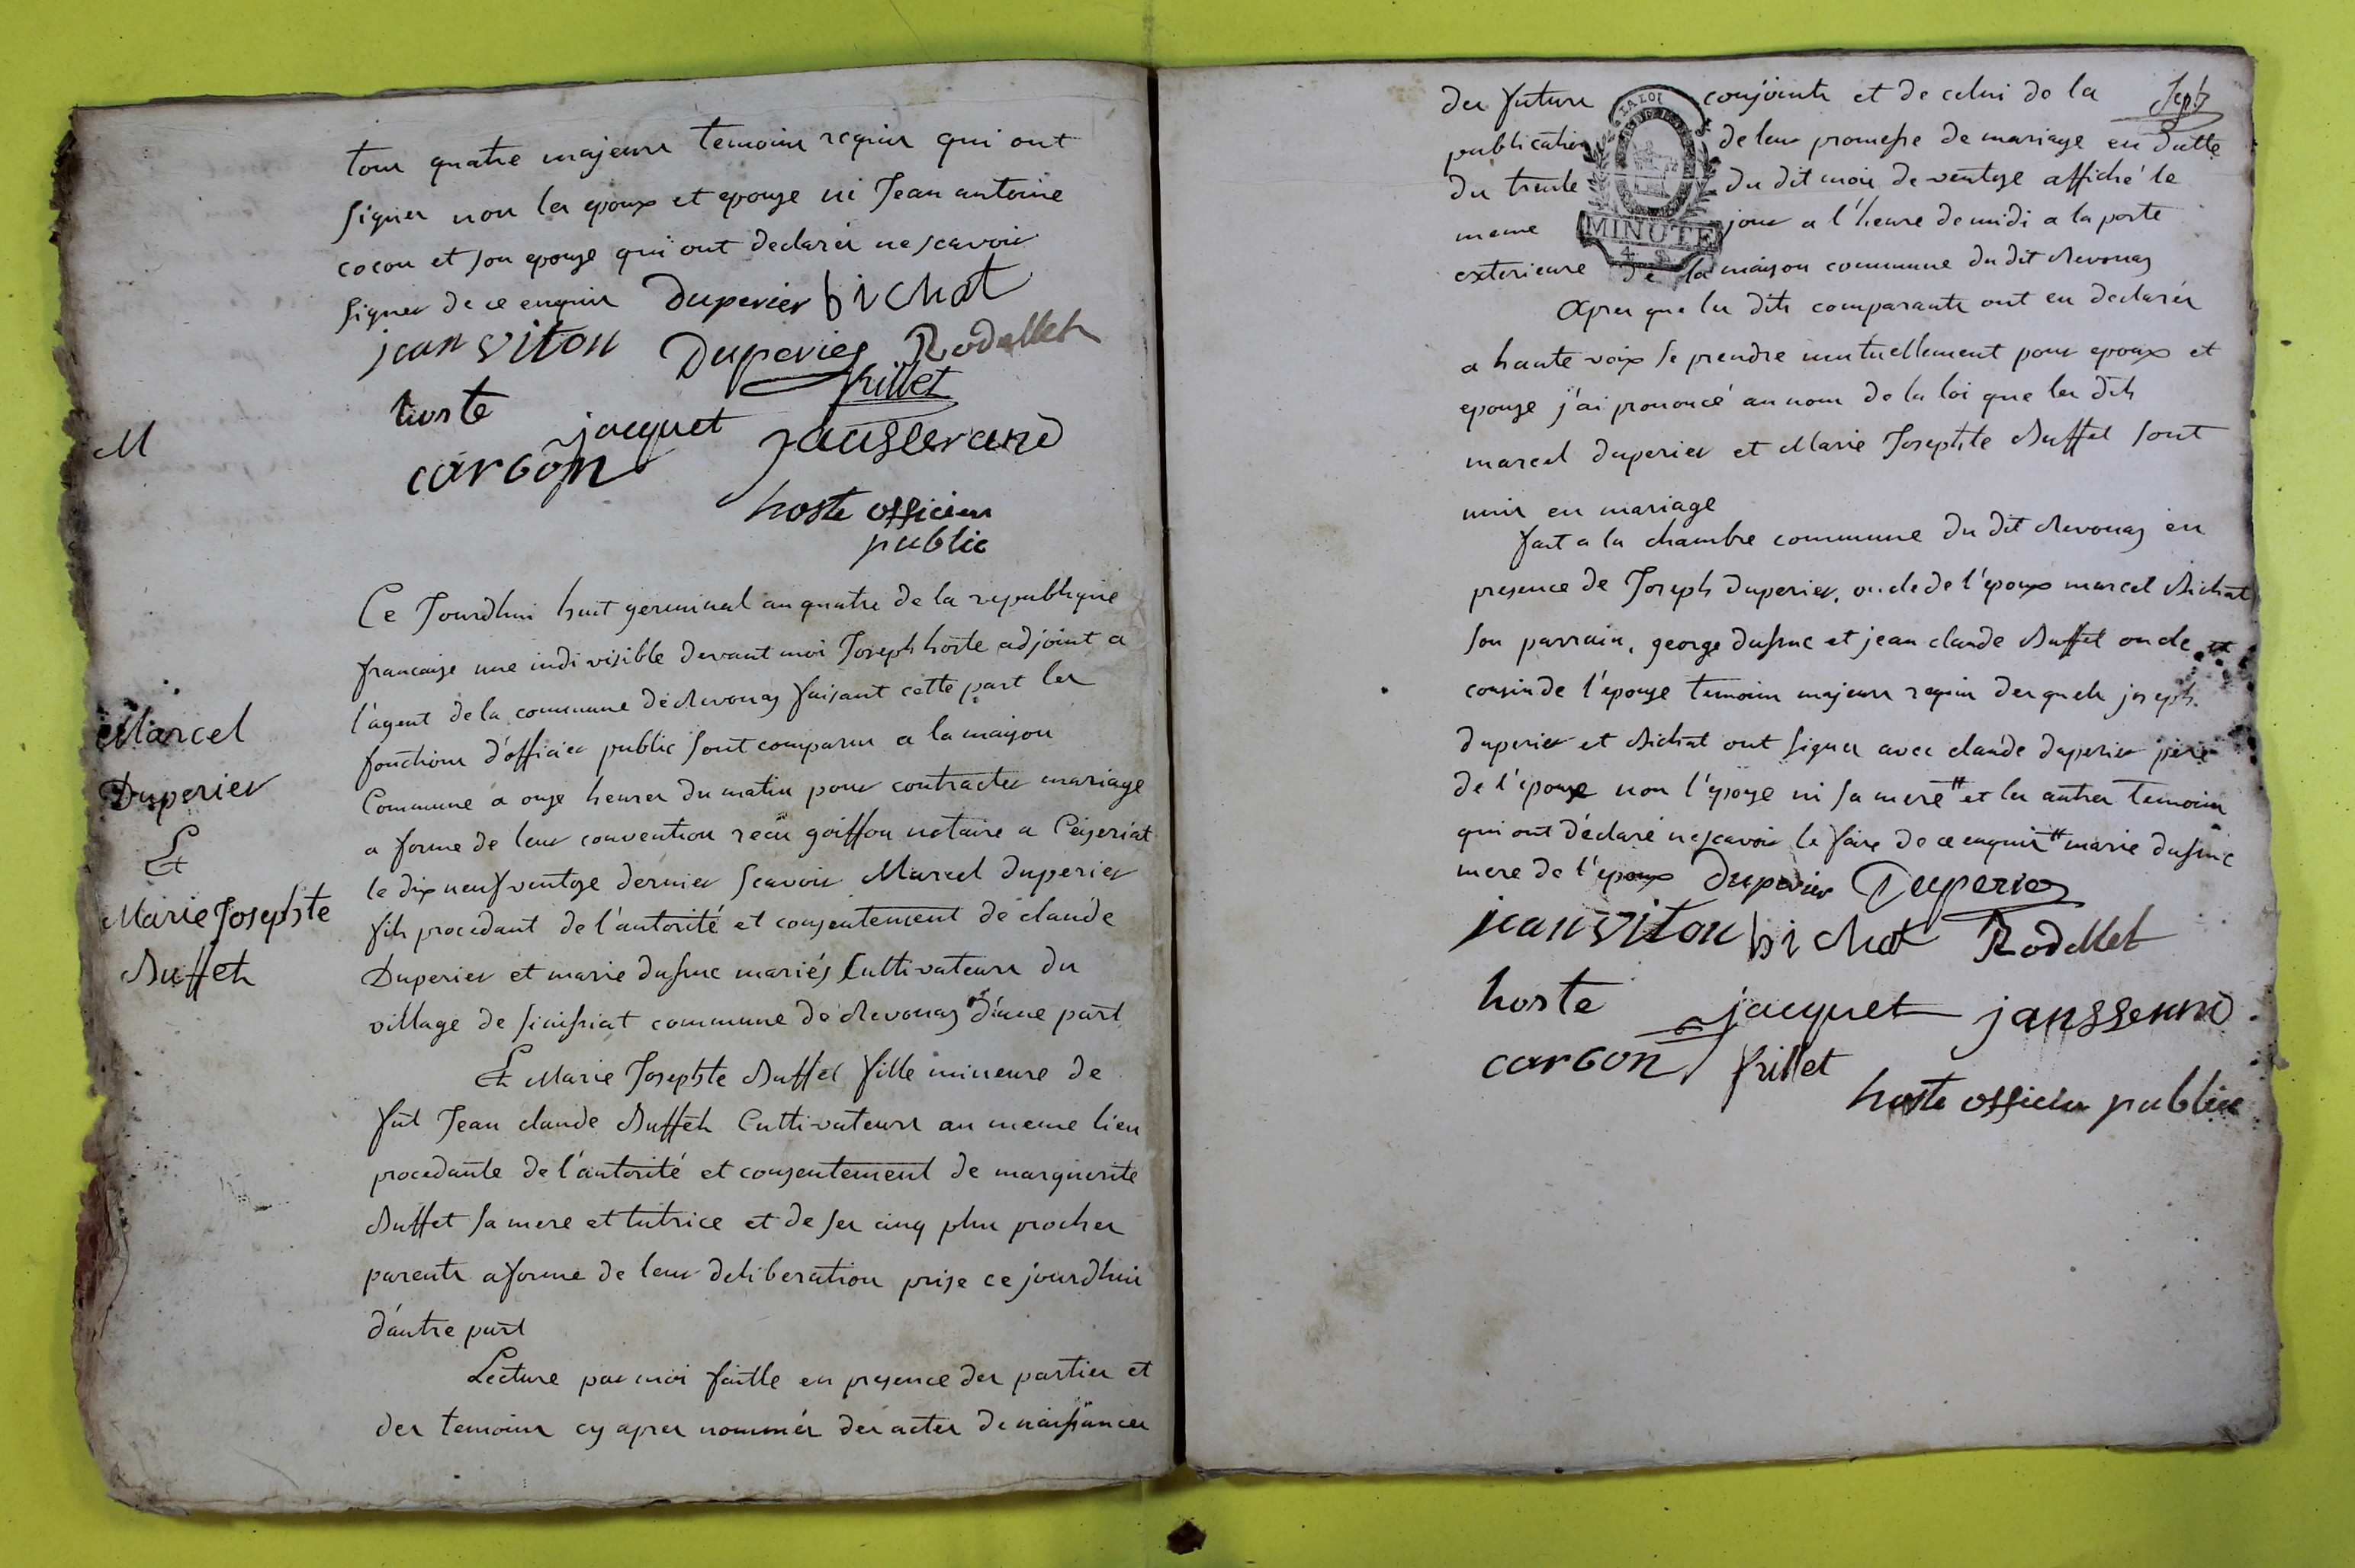 tous quatre majeurs temoins requis qui ont
signer non les epoux et epouze ni Jean antoine
cocon et son epouze qui ont declarés ne scavoir
signer de ce enquis Duperier bichat
jean viton Duperier Rodellet
frillet
hoste jacquet jausserand
carbon
hoste officier
public
M
Ce Jourdhui huit germinal an quatre de la republique
francaise une indivisible devant moi Joseph hoste adjoint a
l'agent de la commune de Revonas faisant cette part les
fonctions d'officier public sont comparus a la maison
Commune a onze heures du matin pour contracter mariage
a forme de leur convention recu goiffon notaire a Ceyseriat
le dix neuf ventose dernier scavoir Marcel Duperier
fils procedant de l'autorité et consentement de claude
Duperier et marie dufour mariés Cultivateurs du
village de commune de Revonas d'une part
Marcel
Duperier
Et
Marie Josephte
Buffet
Et Marie Josephte Buffet fille mineure de
fut Jean claude Buffet Cultivateurs au meme lieu
procedante de l'autorité et consentement de marguerite
Buffet sa mere et tutrice et de ses cinq plus proches
parents a forme de leur deliberation prise ce jourdhui
d'autre part
Lecture par moi faitte en presence des parties et
des temoins cy apres nommés des actes de naissances
des futurs conjoints et de celui de la Sept
publication de leur promesse de mariage en datte
du trente du dit mois de ventose affiché le
meme jour a l'heure de midi a la porte
exterieure de la maison commune du dit Revonas
LA LOI
MINUTE
4 S
Apres que les dits comparants ont eu declarés
a haute voix se prendre mutuellement pour epoux et
epouze j'ai prononcé au nom de la loi que les dits
marcel duperier et Marie Josephte Buffet sont
unis en mariage
fait a la chambre commune du dit Revonas en
presence de Joseph duperier, oncle de l'epoux marcel Bichat
son parrain, george et jean claude Buffet oncle et
cousin de l'epouze temoins majeurs requis desquels joseph
duperier et Bichat ont signer avec claude duperier pere
de l'epoux non l'epouze ni sa mere # et les autres temoins
qui ont déclaré ne scavoir le faire de ce enquis # marie
mere de l'epoux Duperier Duperier
jean viton bichat Rodellet
hoste jacquet jausserand
carbon frillet
hoste officier public